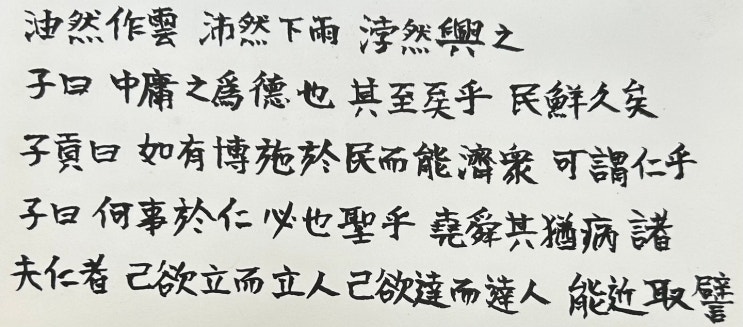 油然作雲 沛然下雨 浡然興之
子曰 中庸之爲德也 其至矣乎 民鮮久矣
子貢曰 如有博施於民而能濟衆 可謂仁乎
子曰 何事於仁 必也聖乎 堯舜其猶病諸
夫仁者 己欲立而立人 己欲達而達人 能近取譬